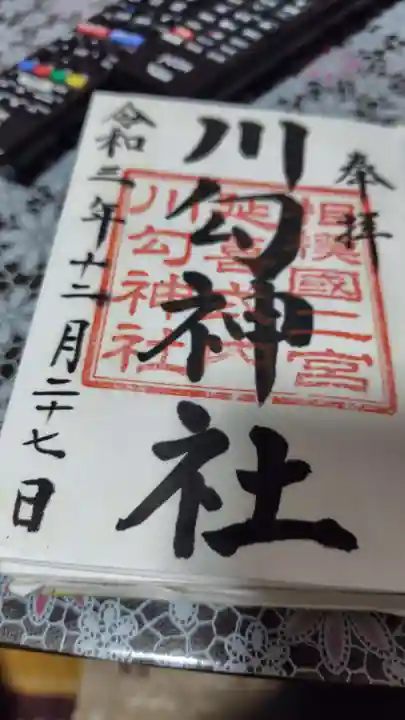 奉拝
川勾神社
相模國二宮
延喜式内
川勾神社
令和三年十二月二十七日